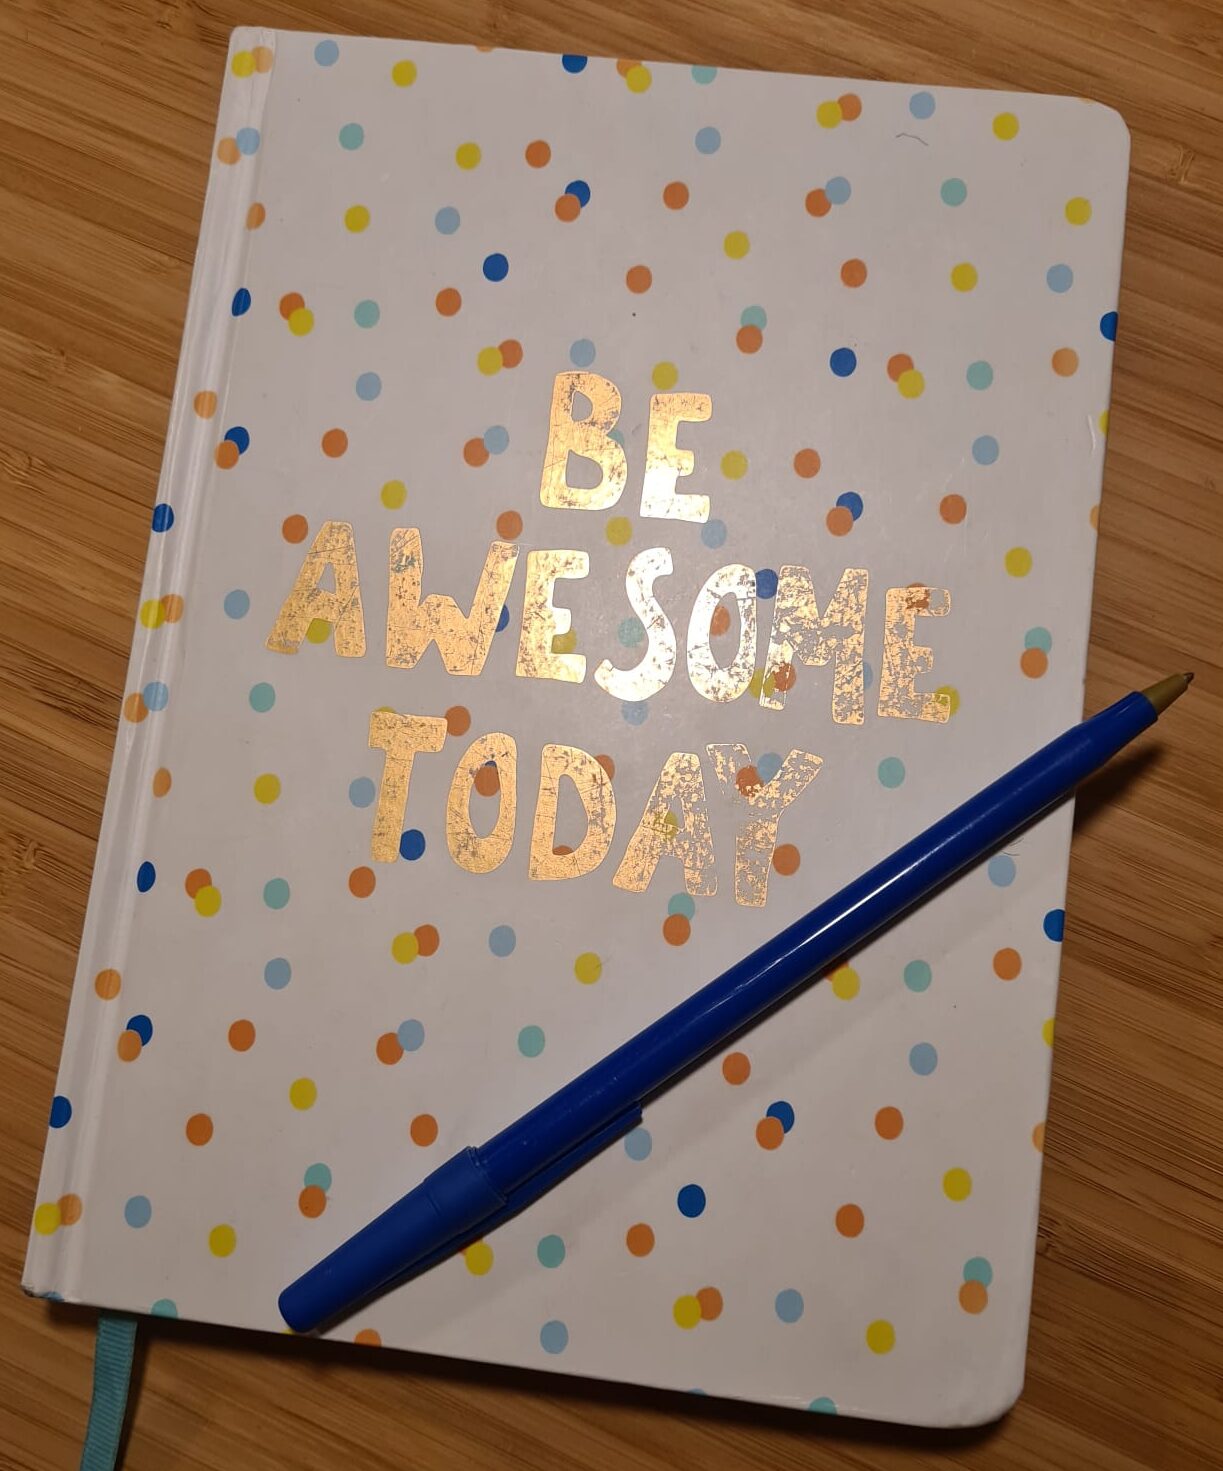 BE
AWESOME
TODAY